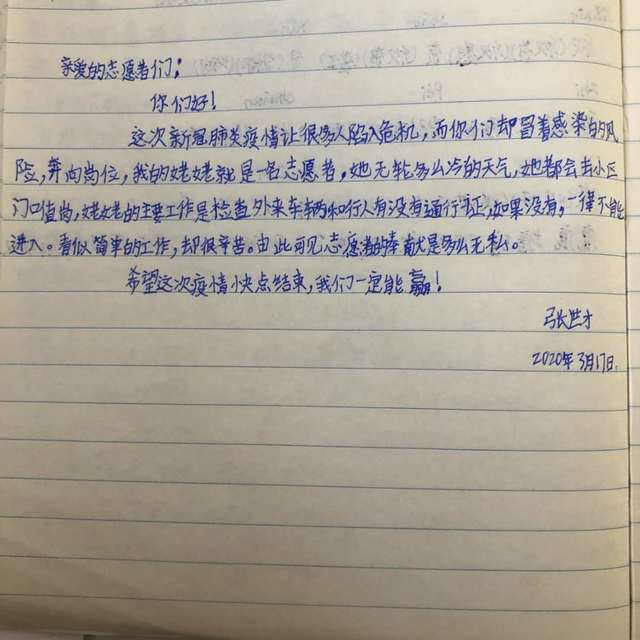 亲爱的志愿者们：
你们好！
这次新冠肺炎疫情让很多人陷入危机，而你们却冒着感染的风
险，奔向岗位，我的姥姥就是一名志愿者，她无论多么冷的天气，她都会去小区
门口值岗，姥姥的主要工作是检查外来车辆和行人有没有通行证，如果没有，一律不能
进入。看似简单的工作，却很辛苦。由此可见志愿者的奉献是多么无私。
希望这次疫情快点结束，我们一定能赢！
张世才
2020年3月17日.